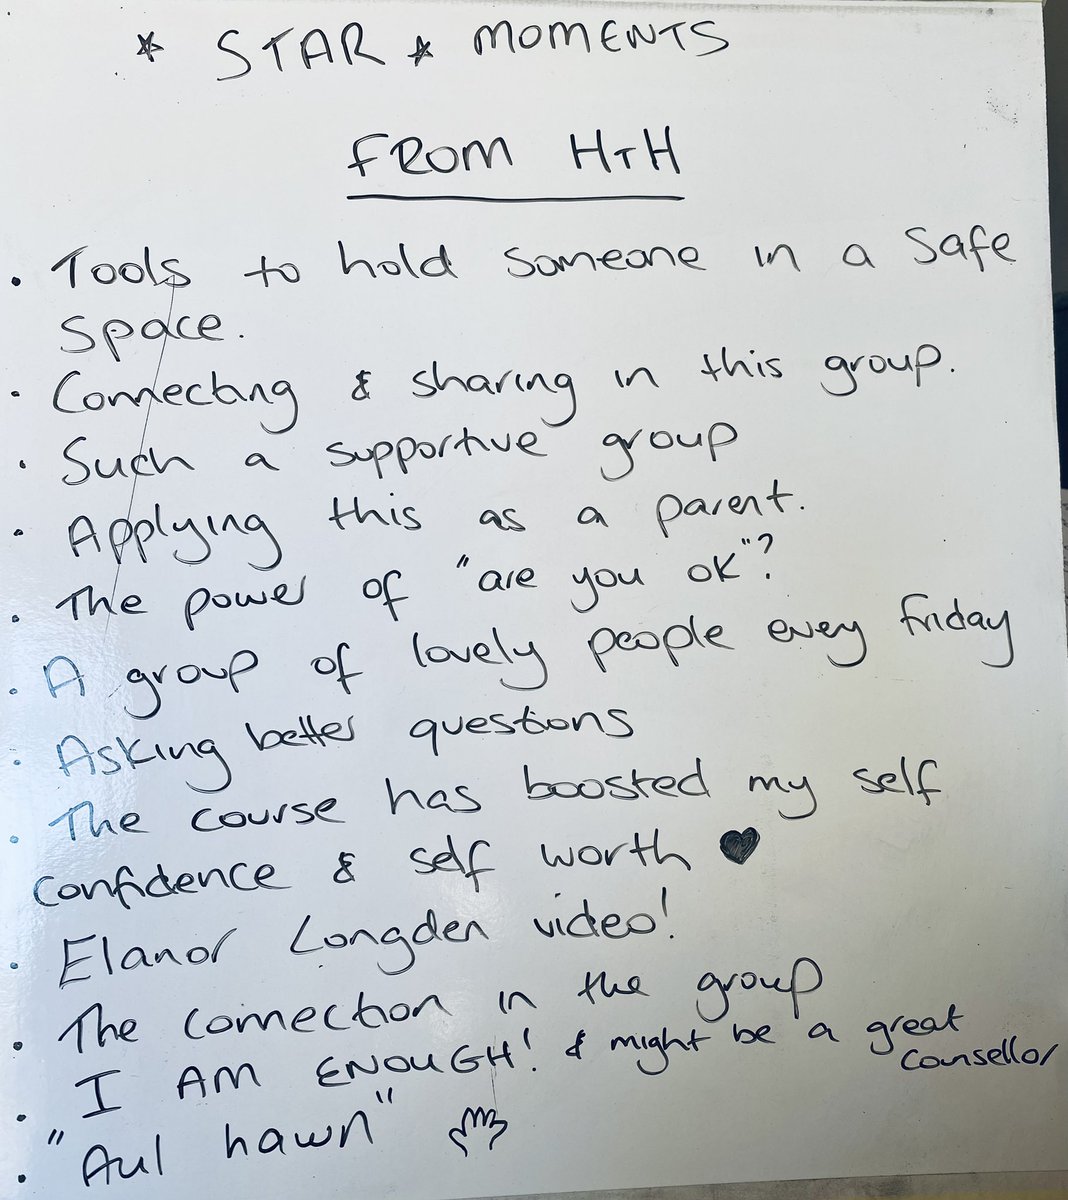 * STAR * MOMENTS
FROM HTH
• Tools to hold someone in a safe
space.
• Connecting & sharing in this group.
• Such a supportive group
• Applying this as a parent.
• The power of "are you ok"?
• A group of lovely people every friday
• Asking better questions
• The course has boosted my self
confidence & self worth ♥
• Elanor Longden video!
• The connection in the group
• I AM ENOUGH! & might be a great
counsellor
• "Aul hawn"